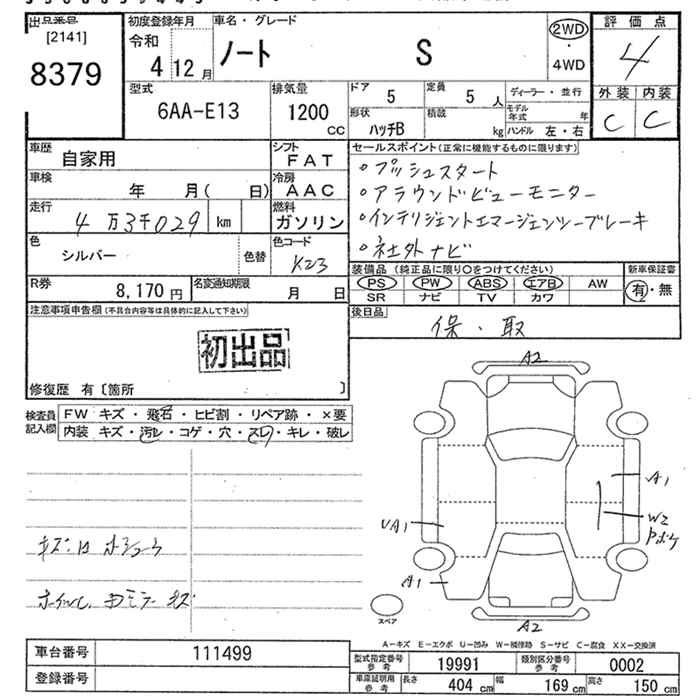 出品番号
[2141]
8379
初度登録年月
令和
4 12月
車名・グレード
ノート S
2WD
・
4WD
評価点
4
外装 内装
C C
型式
6AA-E13
排気量
1200
CC
ドア 5
定員 5 人
ディーラー・並行
形状
ハッチB
積載 kg
モデル年式 年
ハンドル 左・右
車歴
自家用
シフト
FAT
車検 年 月( 日)
冷房
AAC
走行 4万3千029 km
燃料
ガソリン
色
シルバー
色替
色コード
K23
R券 8,170円
名変通知期限 月 日
セールスポイント(正常に機能するものに限ります)
○プッシュスタート
○アラウンドビューモニター
○インテリジェントエマージェンシーブレーキ
○社外ナビ
装備品 (純正品に限り○をつけてください)
新車保証書
PS PW ABS エアB AW
SR ナビ TV カワ
有・無
後日品
保・取
注意事項申告欄(不具合内容等は具体的に記入して下さい)
初出品
修復歴 有〔箇所 〕
検査員
記入欄
FW キズ・飛石・ヒビ割・リペア跡・×要
内装 キズ・汚レ・コゲ・穴・スレ・キレ・破レ
A2
A1
W2
UA1
A1
スペア
A2
A-キズ E-エクボ U-凹み W-補修跡 S-サビ C-腐食 XX-交換済
車台番号 111499
登録番号
型式指定番号
参考
19991
類別区分番号
参考
0002
車庫証明用
参考
長さ 404 cm
幅 169 cm
高さ 150 cm